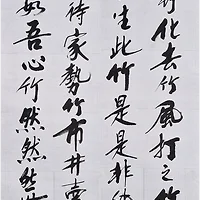 化去竹風打之竹
生此竹是是非
待家勢竹布井
如吾心竹然然